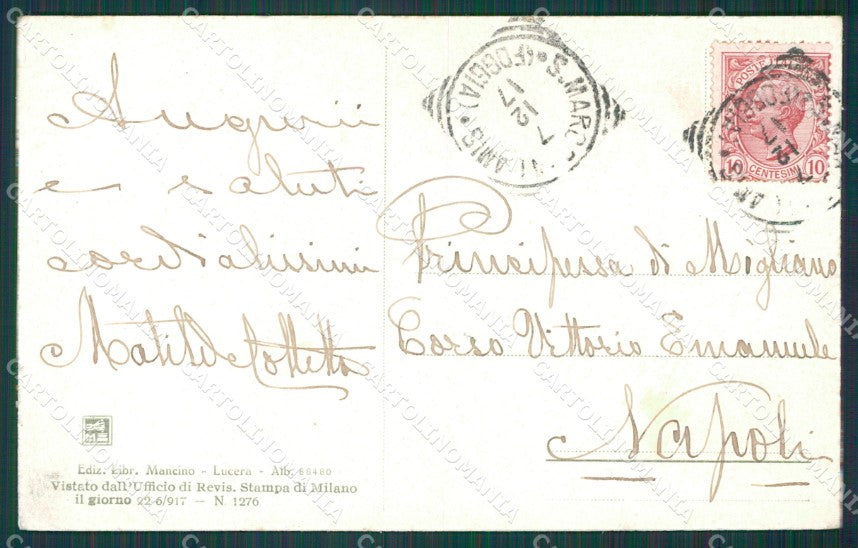 Auguri
e saluti
cordialissimi
Matilde
Principessa di Migliano
Corso Vittorio Emanuele
Napoli
Ediz. Libr. Mancino - Lucera - Alb. 66480
Vistato dall'Ufficio di Revis. Stampa di Milano
il giorno 22-6/917 - N. 1276
(FOGGIA) S. MARCO
7 12 17
POSTE
10 CENTESIMI 10
CARTOLINOMANIA